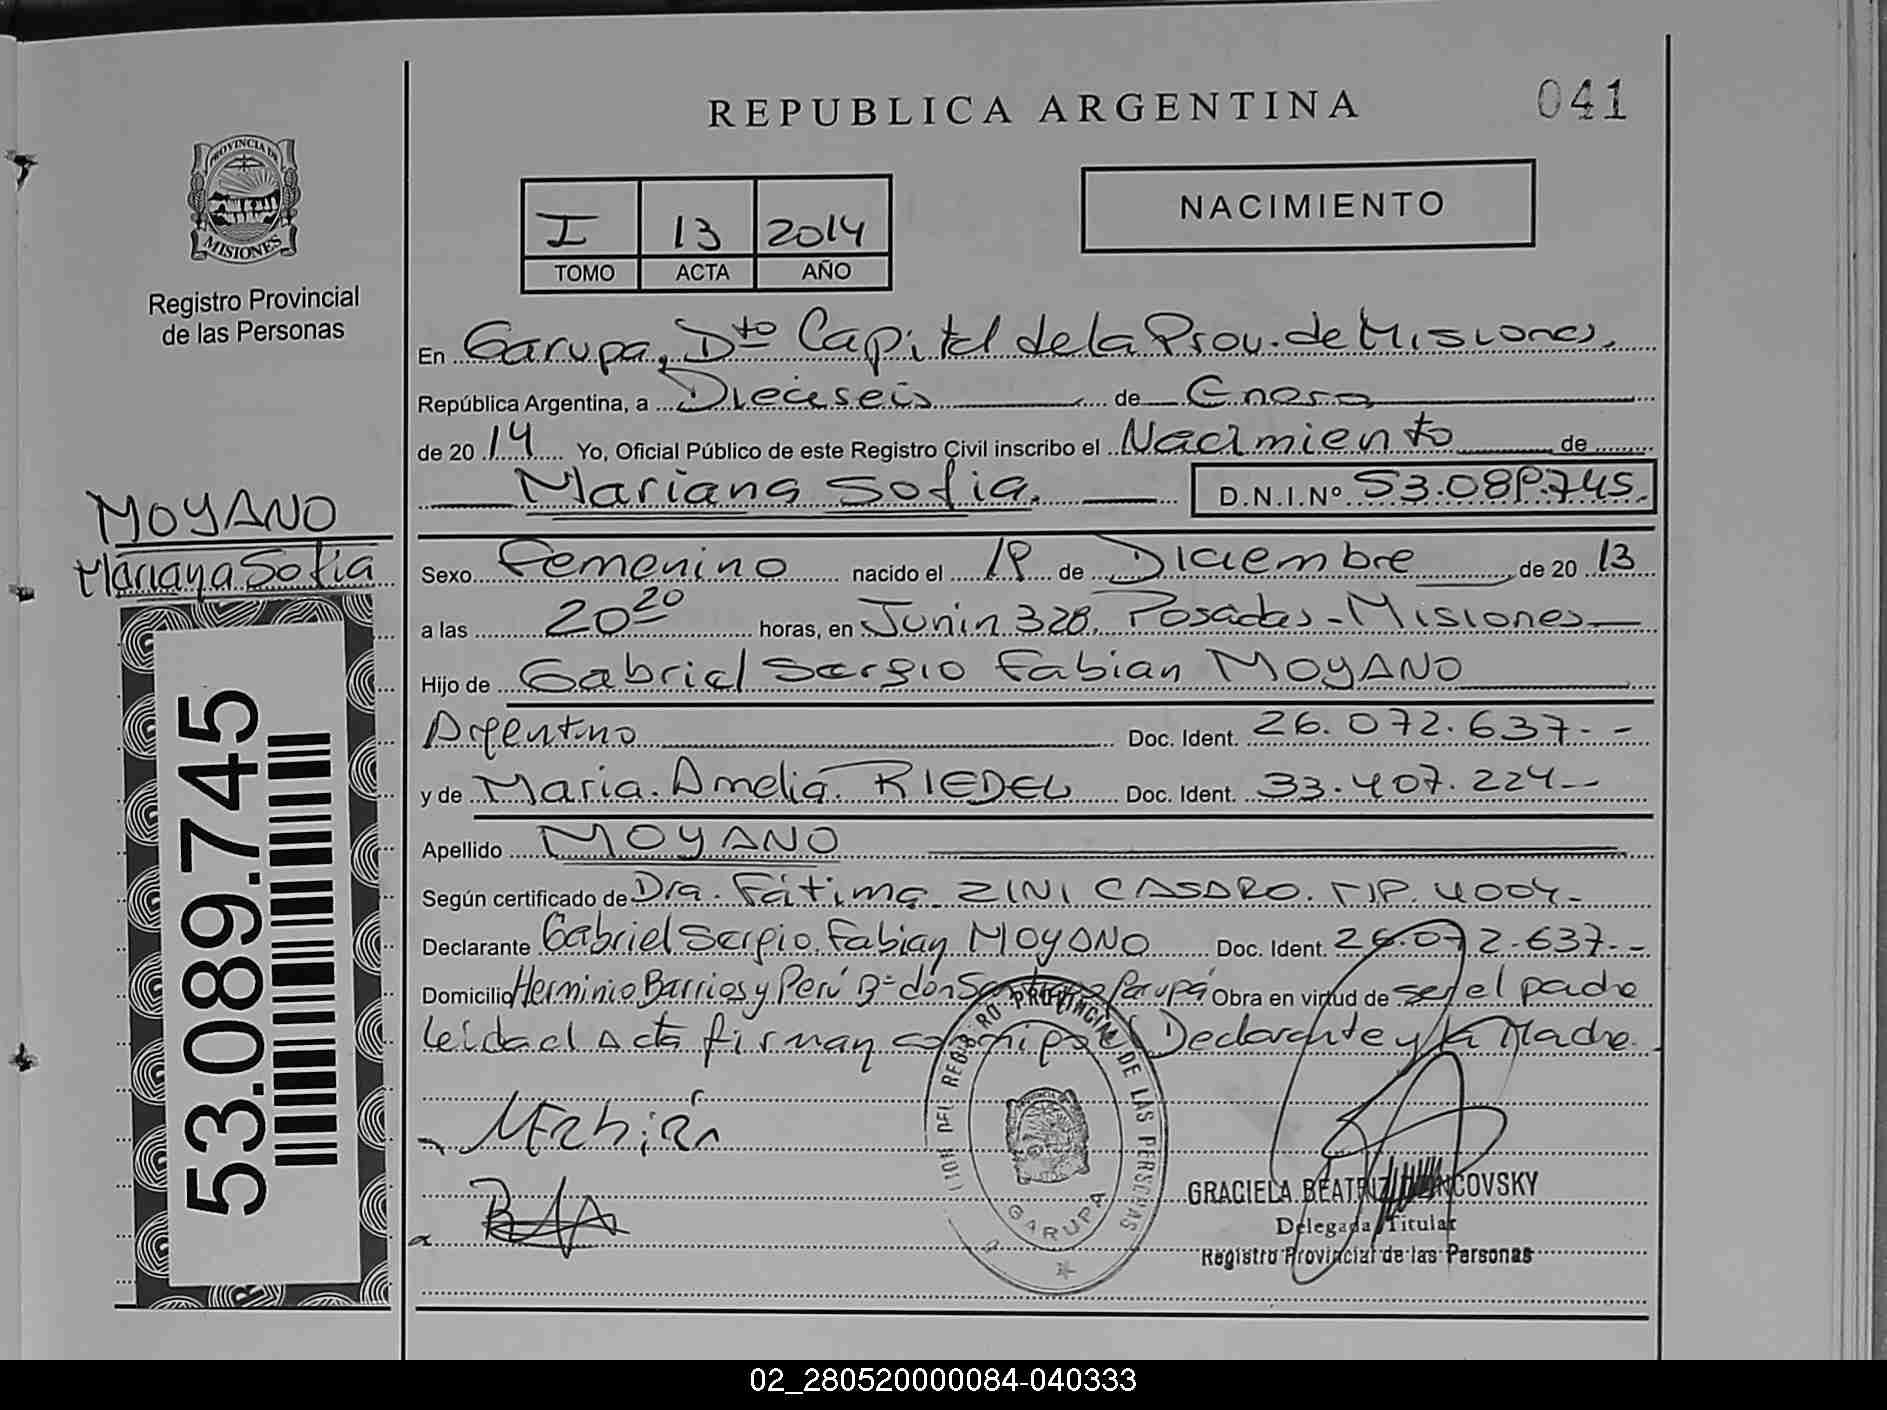 REPUBLICA ARGENTINA
041
PROVINCIA DE
MISIONES
Registro Provincial
de las Personas
NACIMIENTO
I 13 2014
TOMO ACTA AÑO
En Garupa, Dto Capital de la Prov. de Misiones.
República Argentina, a Dieciseis de Enero
de 2014 Yo, Oficial Público de este Registro Civil inscribo el Nacimiento de
Mariana Sofia. D.N.I.Nº 53.089.745.
MOYANO
Mariana Sofia
53.089.745
Sexo Femenino nacido el 19 de Diciembre de 2013
a las 20 20 horas, en Junin 328. Posadas - Misiones
Hijo de Gabriel Sergio Fabian MOYANO
Argentino Doc. Ident. 26.072.637.-
y de Maria Amelia RIEDEL Doc. Ident. 33.407.224-
Apellido MOYANO
Según certificado de Dra. Fátima ZINI CASARO. MP. 4004-
Declarante Gabriel Sergio Fabian MOYANO Doc. Ident. 26.072.637.-
Domicilio Herminio Barrios y Perú Bº don Garupá Obra en virtud de ser el padre
leida el Acta firman conmigo el Declarante y la Madre.
PROVINCIAL DE LAS PERSONAS
GARUPA
GRACIELA BEATRIZ
Delegada Titular
Registro Provincial de las Personas
02_280520000084-040333